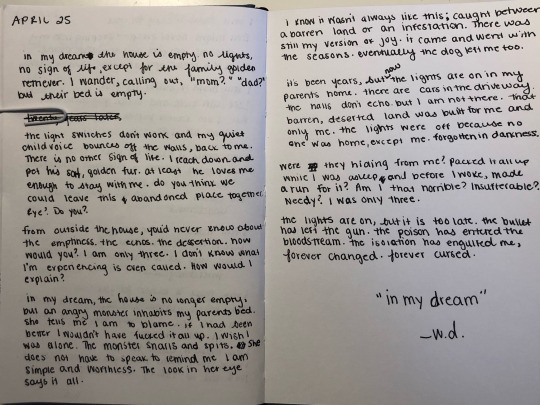 APRIL 25
in my dream the house is empty. no lights,
no sign of life, except for the family golden
retriever. I wander, calling out, "mom?" "dad?"
but their bed is empty.
the light switches don't work and my quiet
child voice bounces off the walls, back to me.
There is no other sign of life. I reach down and
pet his soft, golden fur. at least he loves me
enough to stay with me. do you think we
could leave this abandoned place together,
Rye? Do you?
from outside the house, you'd never know about
the emptiness. the echos. the desertion. how
would you? I am only three. I don't know what
I'm experiencing is even called. How would I
explain?
in my dream, the house is no longer empty,
but an angry monster inhabits my parents bed.
she tells me I am to blame. if I had been
better I wouldn't have fucked it all up. I wish I
was alone. The monster snarls and spits. She
does not have to speak to remind me I am
simple and worthless. The look in her eye
says it all.
I know it wasn't always like this; caught between
a barren land or an infestation. There was
still my version of joy. it came and went with
the seasons. eventually the dog left me too.
it's been years, but now the lights are on in my
parents home. there are cars in the driveway.
the halls don't echo. but I am not there. That
barren, deserted land was built for me and
only me. the lights were off because no
one was home, except me. forgotten in darkness.
were they hiding from me? Packed it all up
while I was asleep and before I woke, made
a run for it? Am I that horrible? Insufferable?
Needy? I was only three.
the lights are on, but it is too late. the bullet
has left the gun. the poison has entered the
bloodstream. The isolation has engulfed me,
forever changed. forever cursed.
"in my dream"
-w.d.